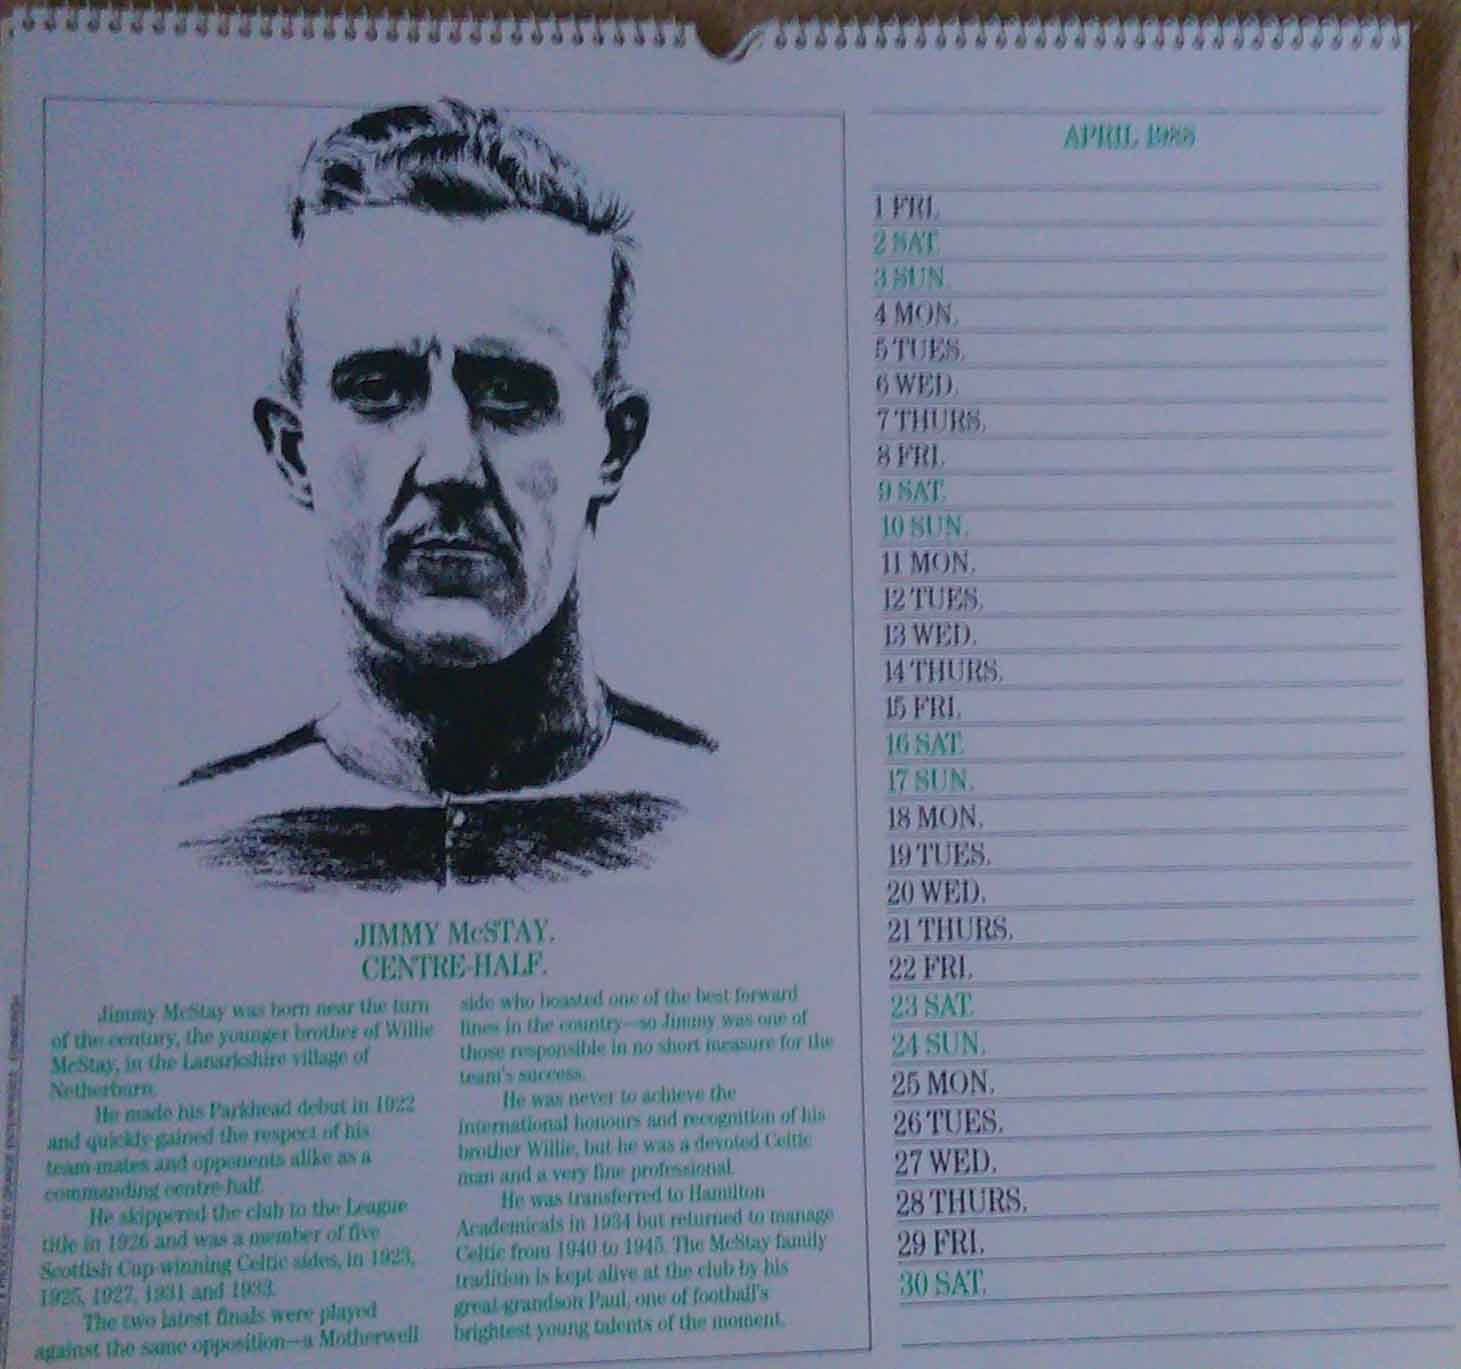 JIMMY McSTAY.
CENTRE-HALF.
Jimmy McStay was born near the turn
of the century, the younger brother of Willie
McStay, in the Lanarkshire village of
Netherburn.
He made his Parkhead debut in 1922
and quickly gained the respect of his
team-mates and opponents alike as a
commanding centre-half.
He skippered the club to the League
title in 1926 and was a member of five
Scottish Cup-winning Celtic sides, in 1923,
1925, 1927, 1931 and 1933.
The two latest finals were played
against the same opposition—a Motherwell
side who boasted one of the best forward
lines in the country—so Jimmy was one of
those responsible in no short measure for the
team's success.
He was never to achieve the
international honours and recognition of his
brother Willie, but he was a devoted Celtic
man and a very fine professional.
He was transferred to Hamilton
Academicals in 1934 but returned to manage
Celtic from 1940 to 1945. The McStay family
tradition is kept alive at the club by his
great-grandson Paul, one of football's
brightest young talents of the moment.
APRIL 1988
1 FRI.
2 SAT.
3 SUN.
4 MON.
5 TUES.
6 WED.
7 THURS.
8 FRI.
9 SAT.
10 SUN.
11 MON.
12 TUES.
13 WED.
14 THURS.
15 FRI.
16 SAT.
17 SUN.
18 MON.
19 TUES.
20 WED.
21 THURS.
22 FRI.
23 SAT.
24 SUN.
25 MON.
26 TUES.
27 WED.
28 THURS.
29 FRI.
30 SAT.